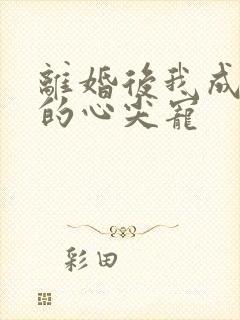 離婚後我成
的心尖寵
彩田